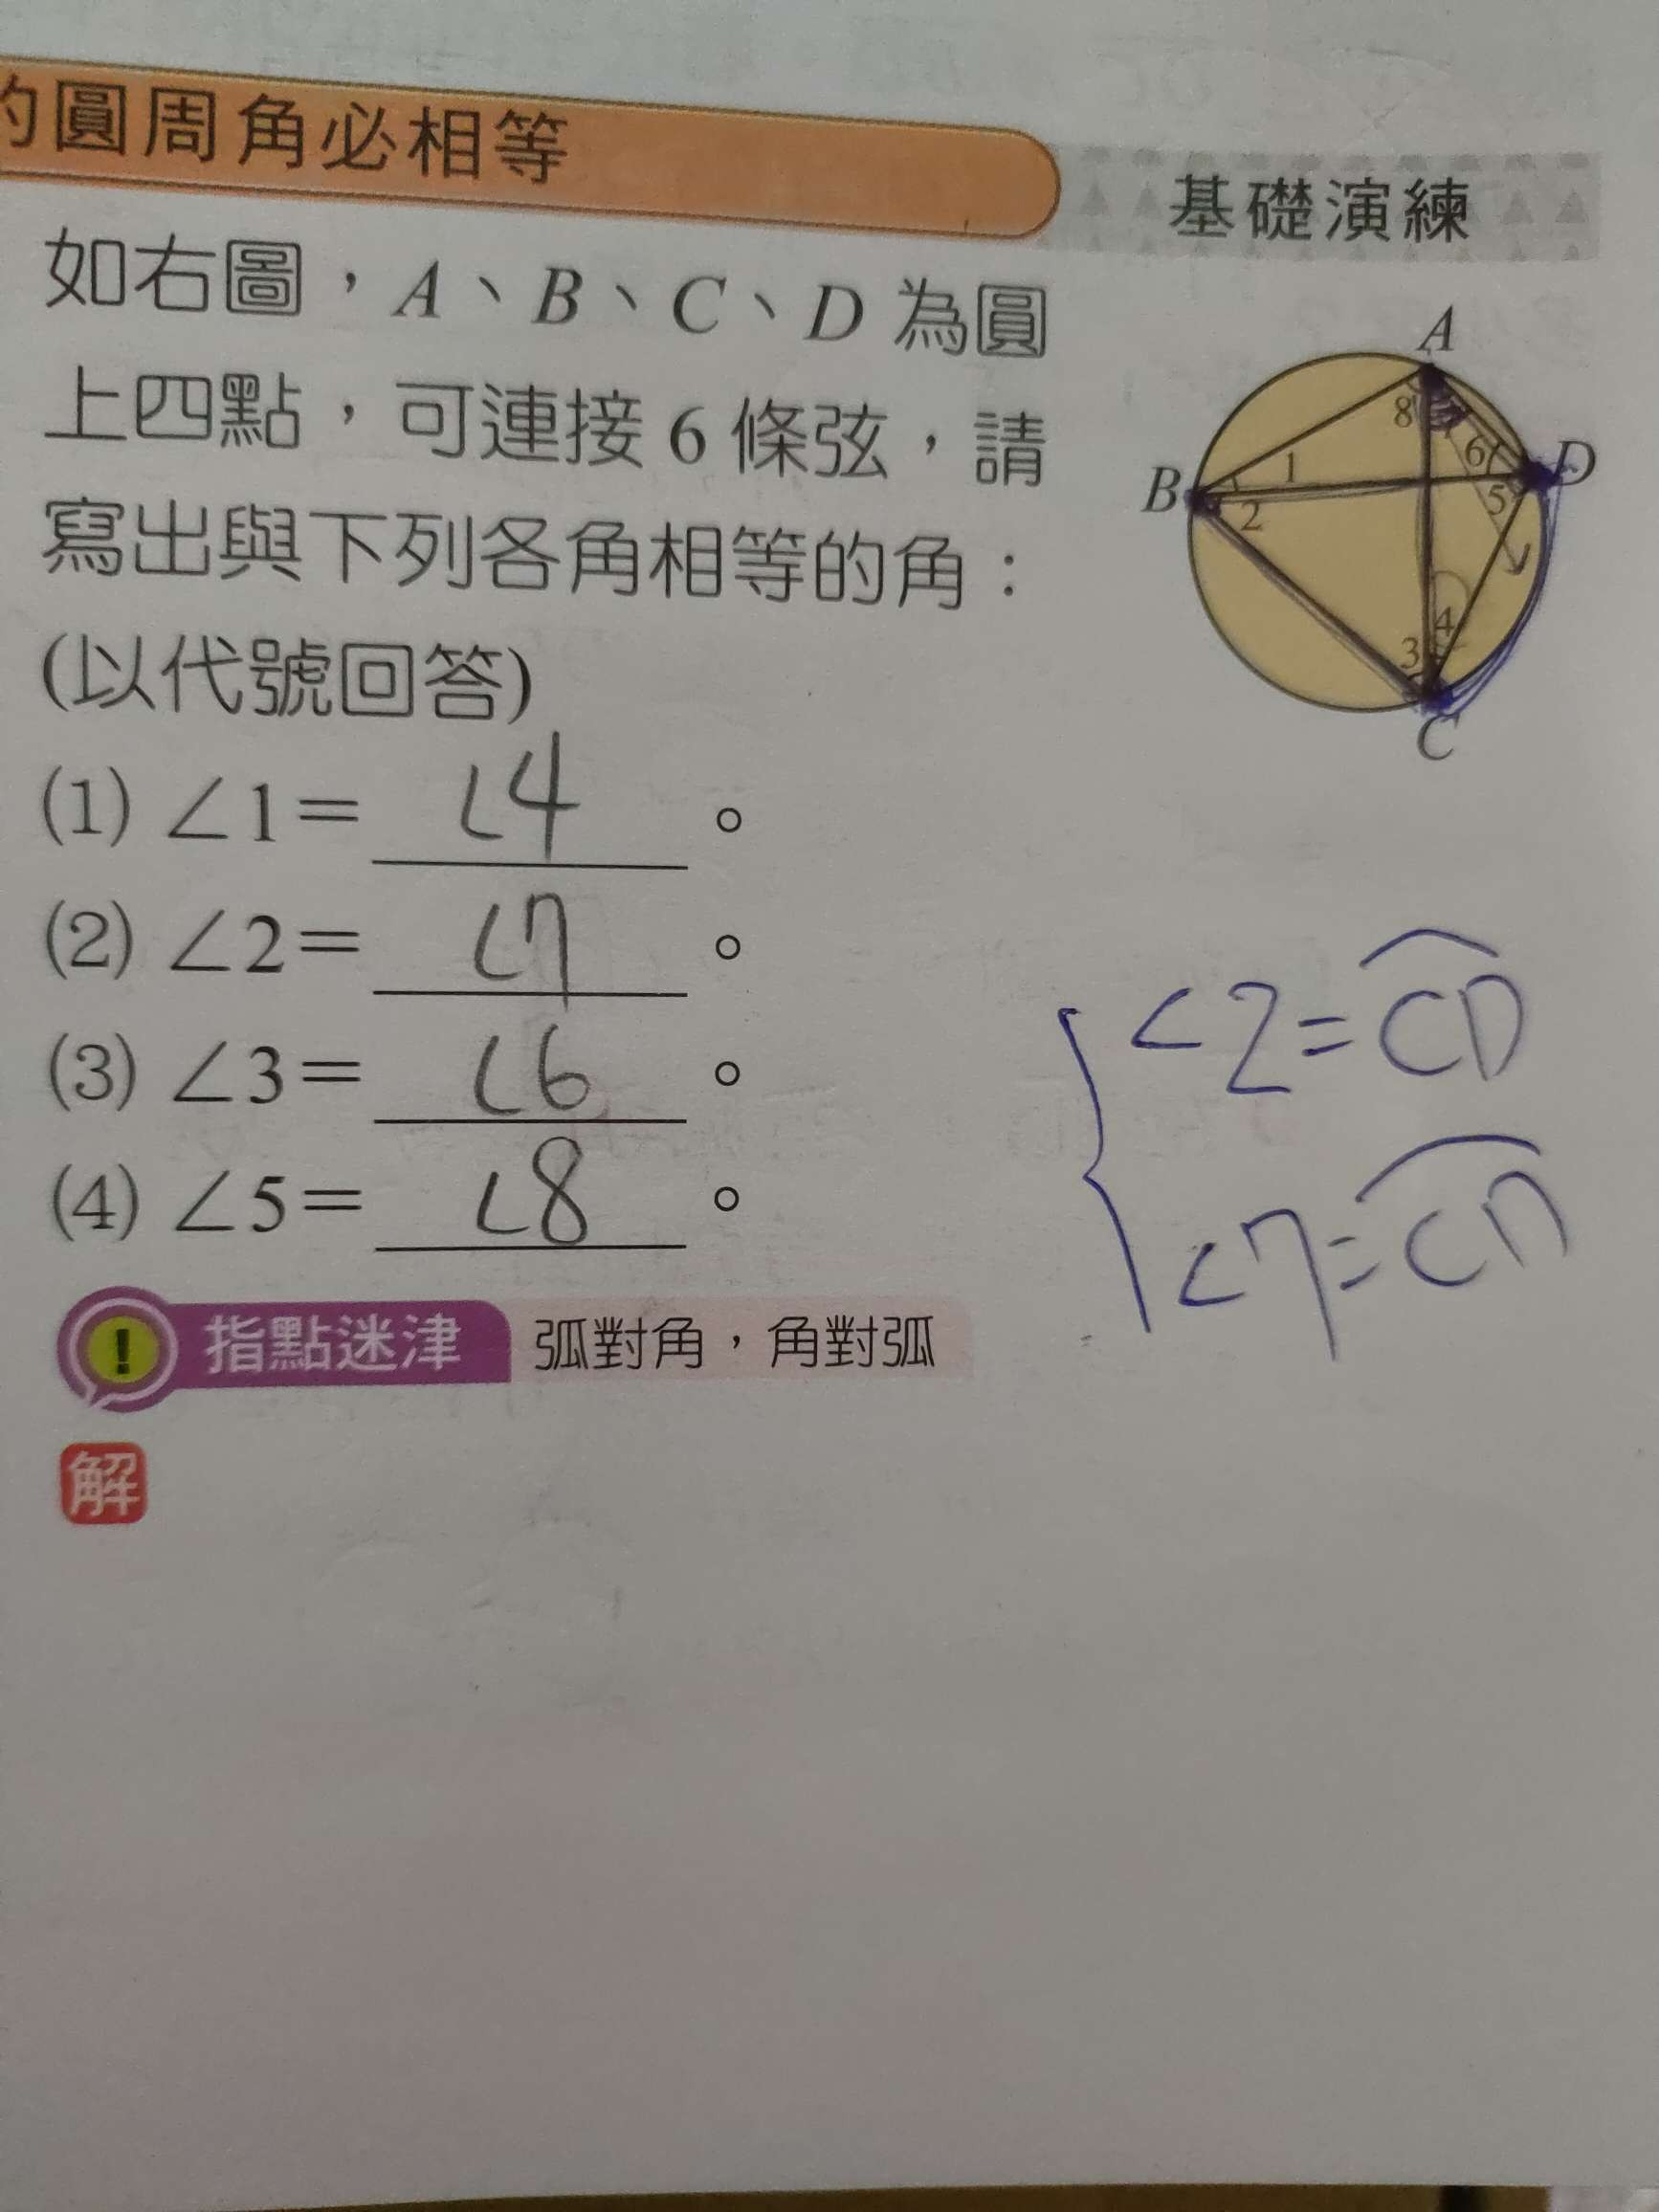 的圓周角必相等
基礎演練
如右圖，A、B、C、D 為圓
上四點，可連接 6 條弦，請
寫出與下列各角相等的角：
(以代號回答)
A
8
6
D
B
1
5
2
4
3
C
(1) ∠1＝ ∠4 。
(2) ∠2＝ ∠7 。
(3) ∠3＝ ∠6 。
(4) ∠5＝ ∠8 。
∠2=CD
∠7=CD
! 指點迷津 弧對角，角對弧
解